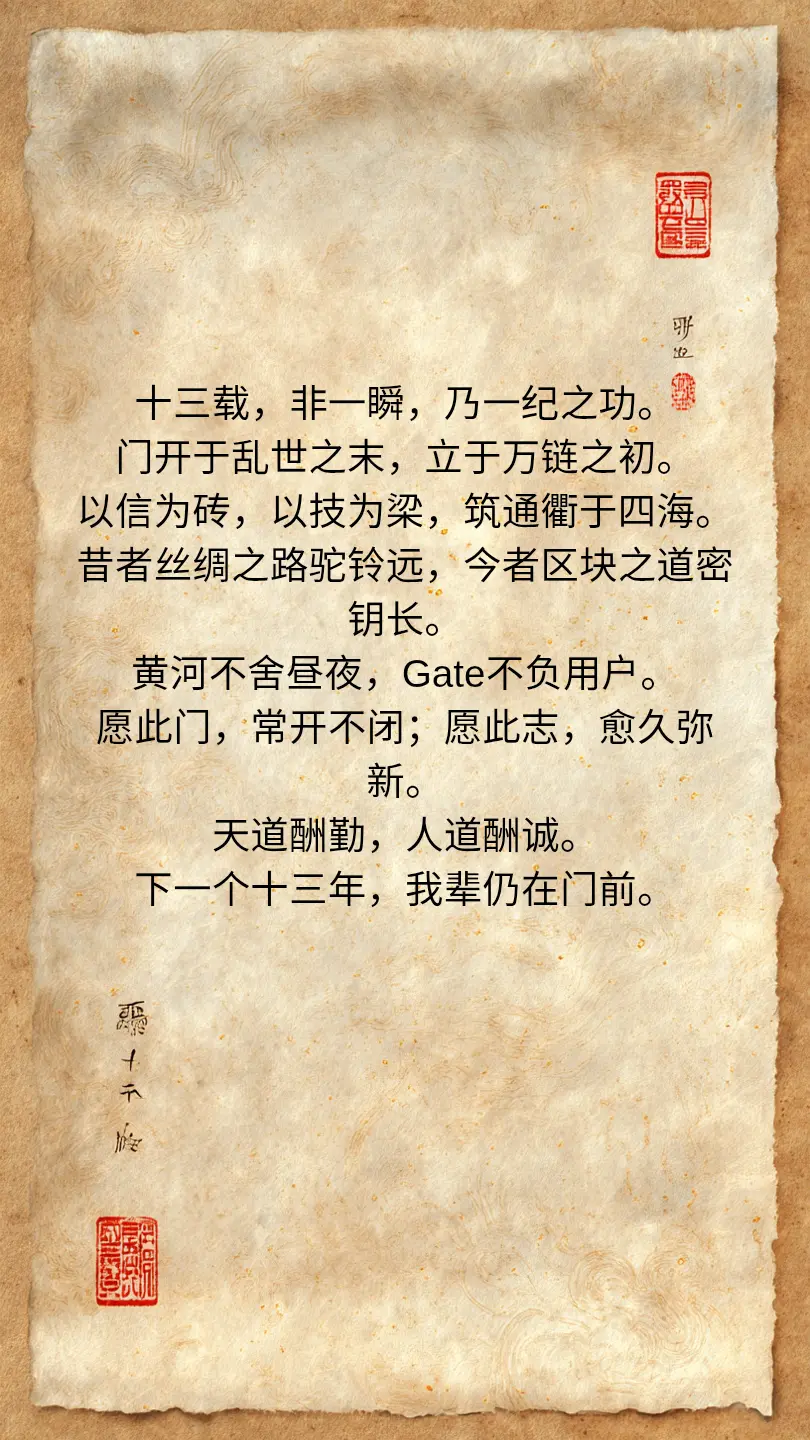 十三载，非一瞬，乃一纪之功。
门开于乱世之末，立于万链之初。
以信为砖，以技为梁，筑通衢于四海。
昔者丝绸之路驼铃远，今者区块之道密
钥长。
黄河不舍昼夜，Gate不负用户。
愿此门，常开不闭；愿此志，愈久弥
新。
天道酬勤，人道酬诚。
下一个十三年，我辈仍在门前。